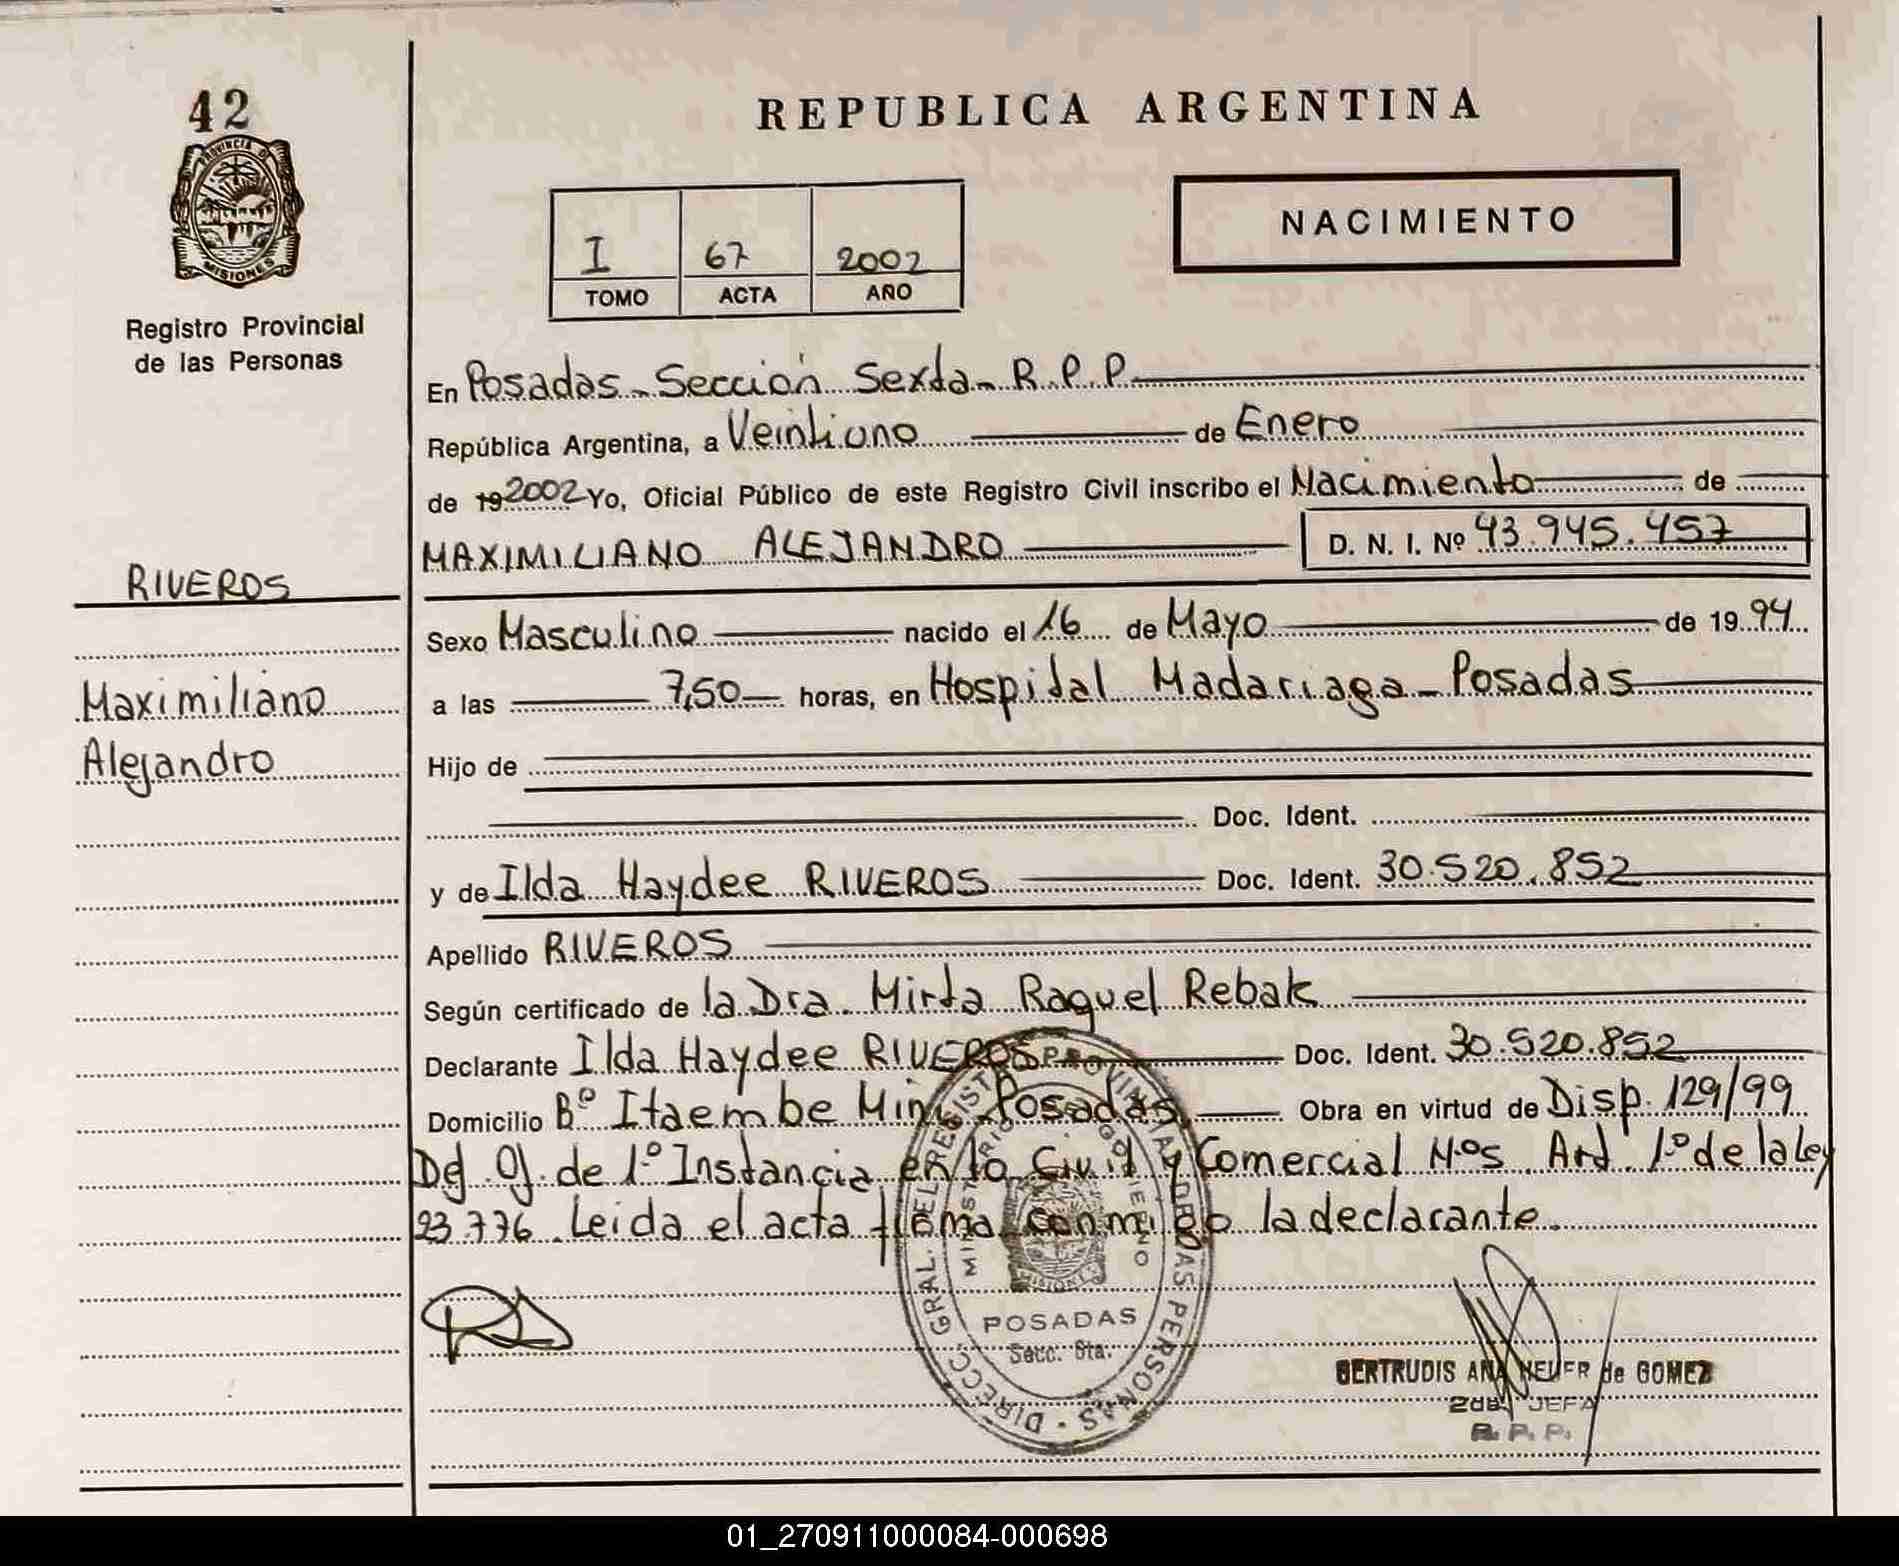 42
REPUBLICA ARGENTINA
PROVINCIA DE
MISIONES
Registro Provincial
de las Personas
NACIMIENTO
I 67 2002
TOMO ACTA AÑO
En Posadas - Sección Sexta - R.P.P.
República Argentina, a Veintiuno de Enero
de 19 2002 Yo, Oficial Público de este Registro Civil inscribo el Nacimiento de
MAXIMILIANO ALEJANDRO D. N. I. Nº 43.945.457
RIVEROS
Maximiliano
Alejandro
Sexo Masculino nacido el 16 de Mayo de 19 94
a las 7,50 horas, en Hospital Madariaga - Posadas
Hijo de
Doc. Ident.
y de Ilda Haydee RIVEROS Doc. Ident. 30.520.852
Apellido RIVEROS
Según certificado de la Dra. Mirta Raquel Rebak
Declarante Ilda Haydee RIVEROS Doc. Ident. 30.520.852
Domicilio Bº Itaembe Mini Posadas, Obra en virtud de Disp. 129/99
de 1º Instancia en lo Civil y Comercial Art. 1º de la Ley
23.776. Leida el acta firma conmigo la declarante.
DIRECC. GRAL. DEL REGISTRO PROVINCIAL DE LAS PERSONAS
MINISTERIO GOBIERNO
MISIONES
POSADAS
Secc. 6ta.
GERTRUDIS ANA de GOMEZ
2da. JEFA
R. P. P.
01_270911000084-000698